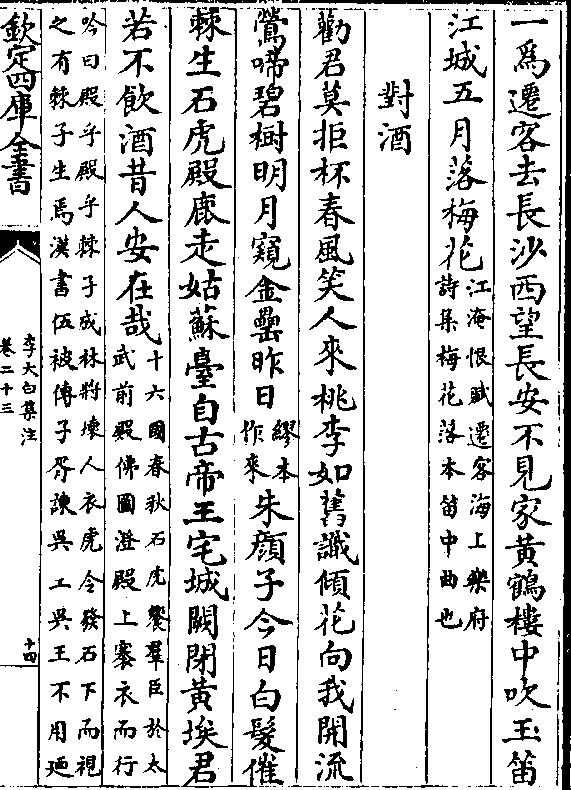 一爲遷客去長沙西望長安不見家黄鶴樓中吹玉笛
江城五月落梅花江淹恨賦遷客海上樂府
詩集梅花落本笛中曲也
對酒
勸君莫拒杯春風笑人來桃李如舊識傾花向我開流
鶯啼碧樹明月窺金罍昨日繆本
作來朱顔子今日白髮催
棘生石虎殿鹿走姑蘇臺自古帝王宅城闕閉黄埃君
若不飲酒昔人安在哉十六國春秋石虎饗羣臣於太
武前殿佛圖澄殿上褰衣而行
吟曰殿乎殿乎棘子成林將壞人衣虎令發石下而視
之有棘子生焉漢書伍被傳子胥諫吳王吳王不用廼
欽定四庫全書
李太白集注
卷二十三
十四